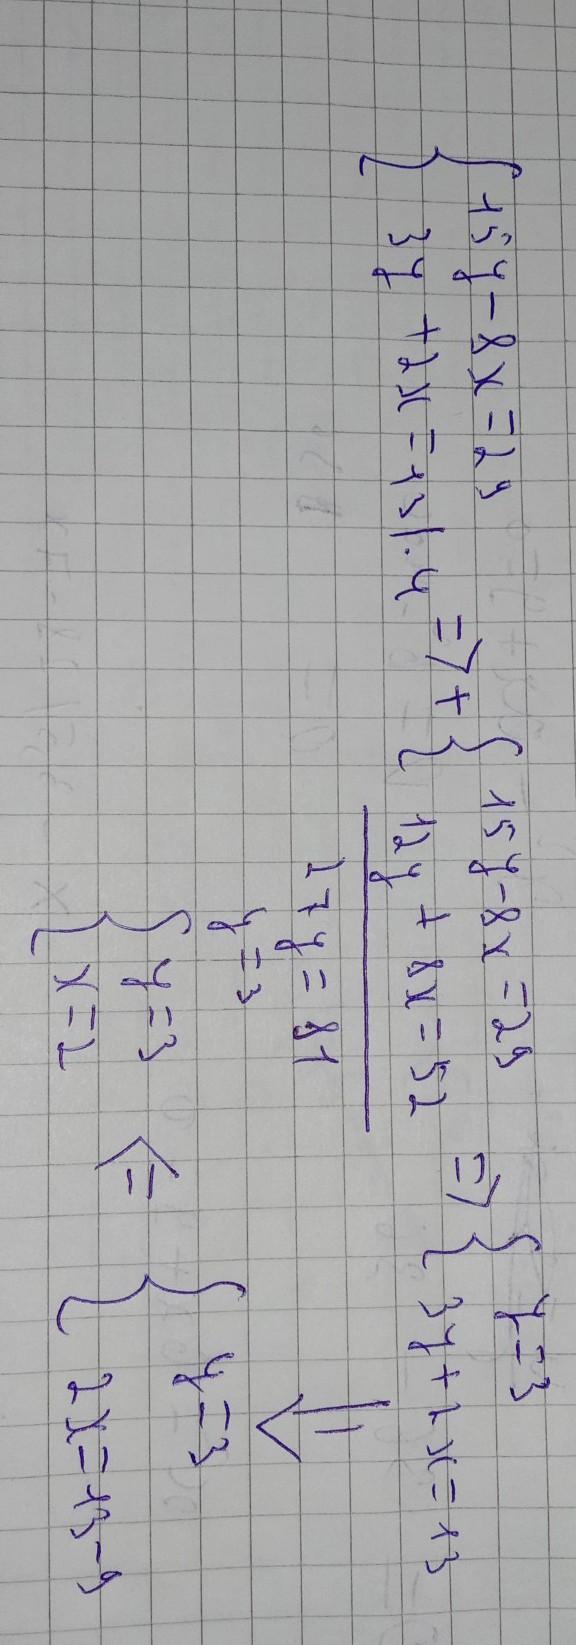 { 15y - 8x = 29
{ 3y + 2x = 13 | · 4
=> + { 15y - 8x = 29
{ 12y + 8x = 52
27y = 81
y = 3
=> { y = 3
{ 3y + 2x = 13
=> { y = 3
{ 2x = 13 - 9
=> { y = 3
{ x = 2